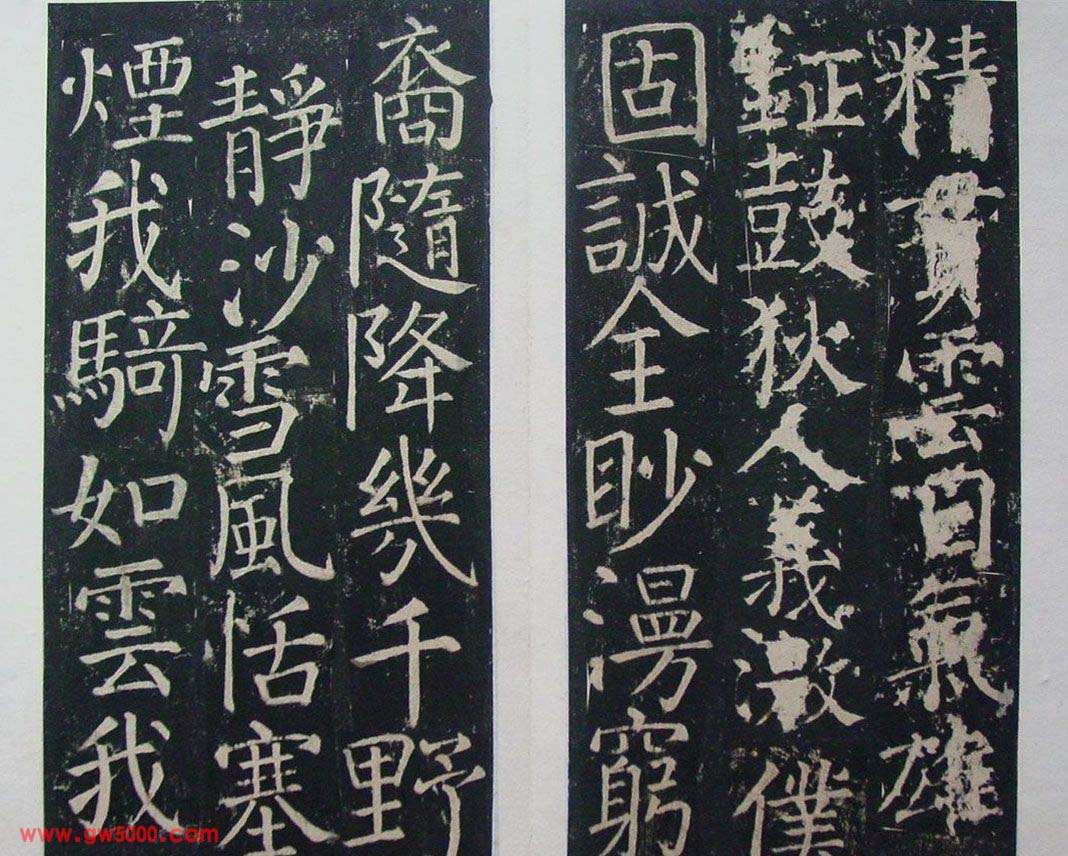 精貫雲白氣雄
鉦鼓狄人義激僕
固誠全眇漫窮
裔隨降幾千野
靜沙雪風恬塞
煙我騎如雲我
www.gw5000.com